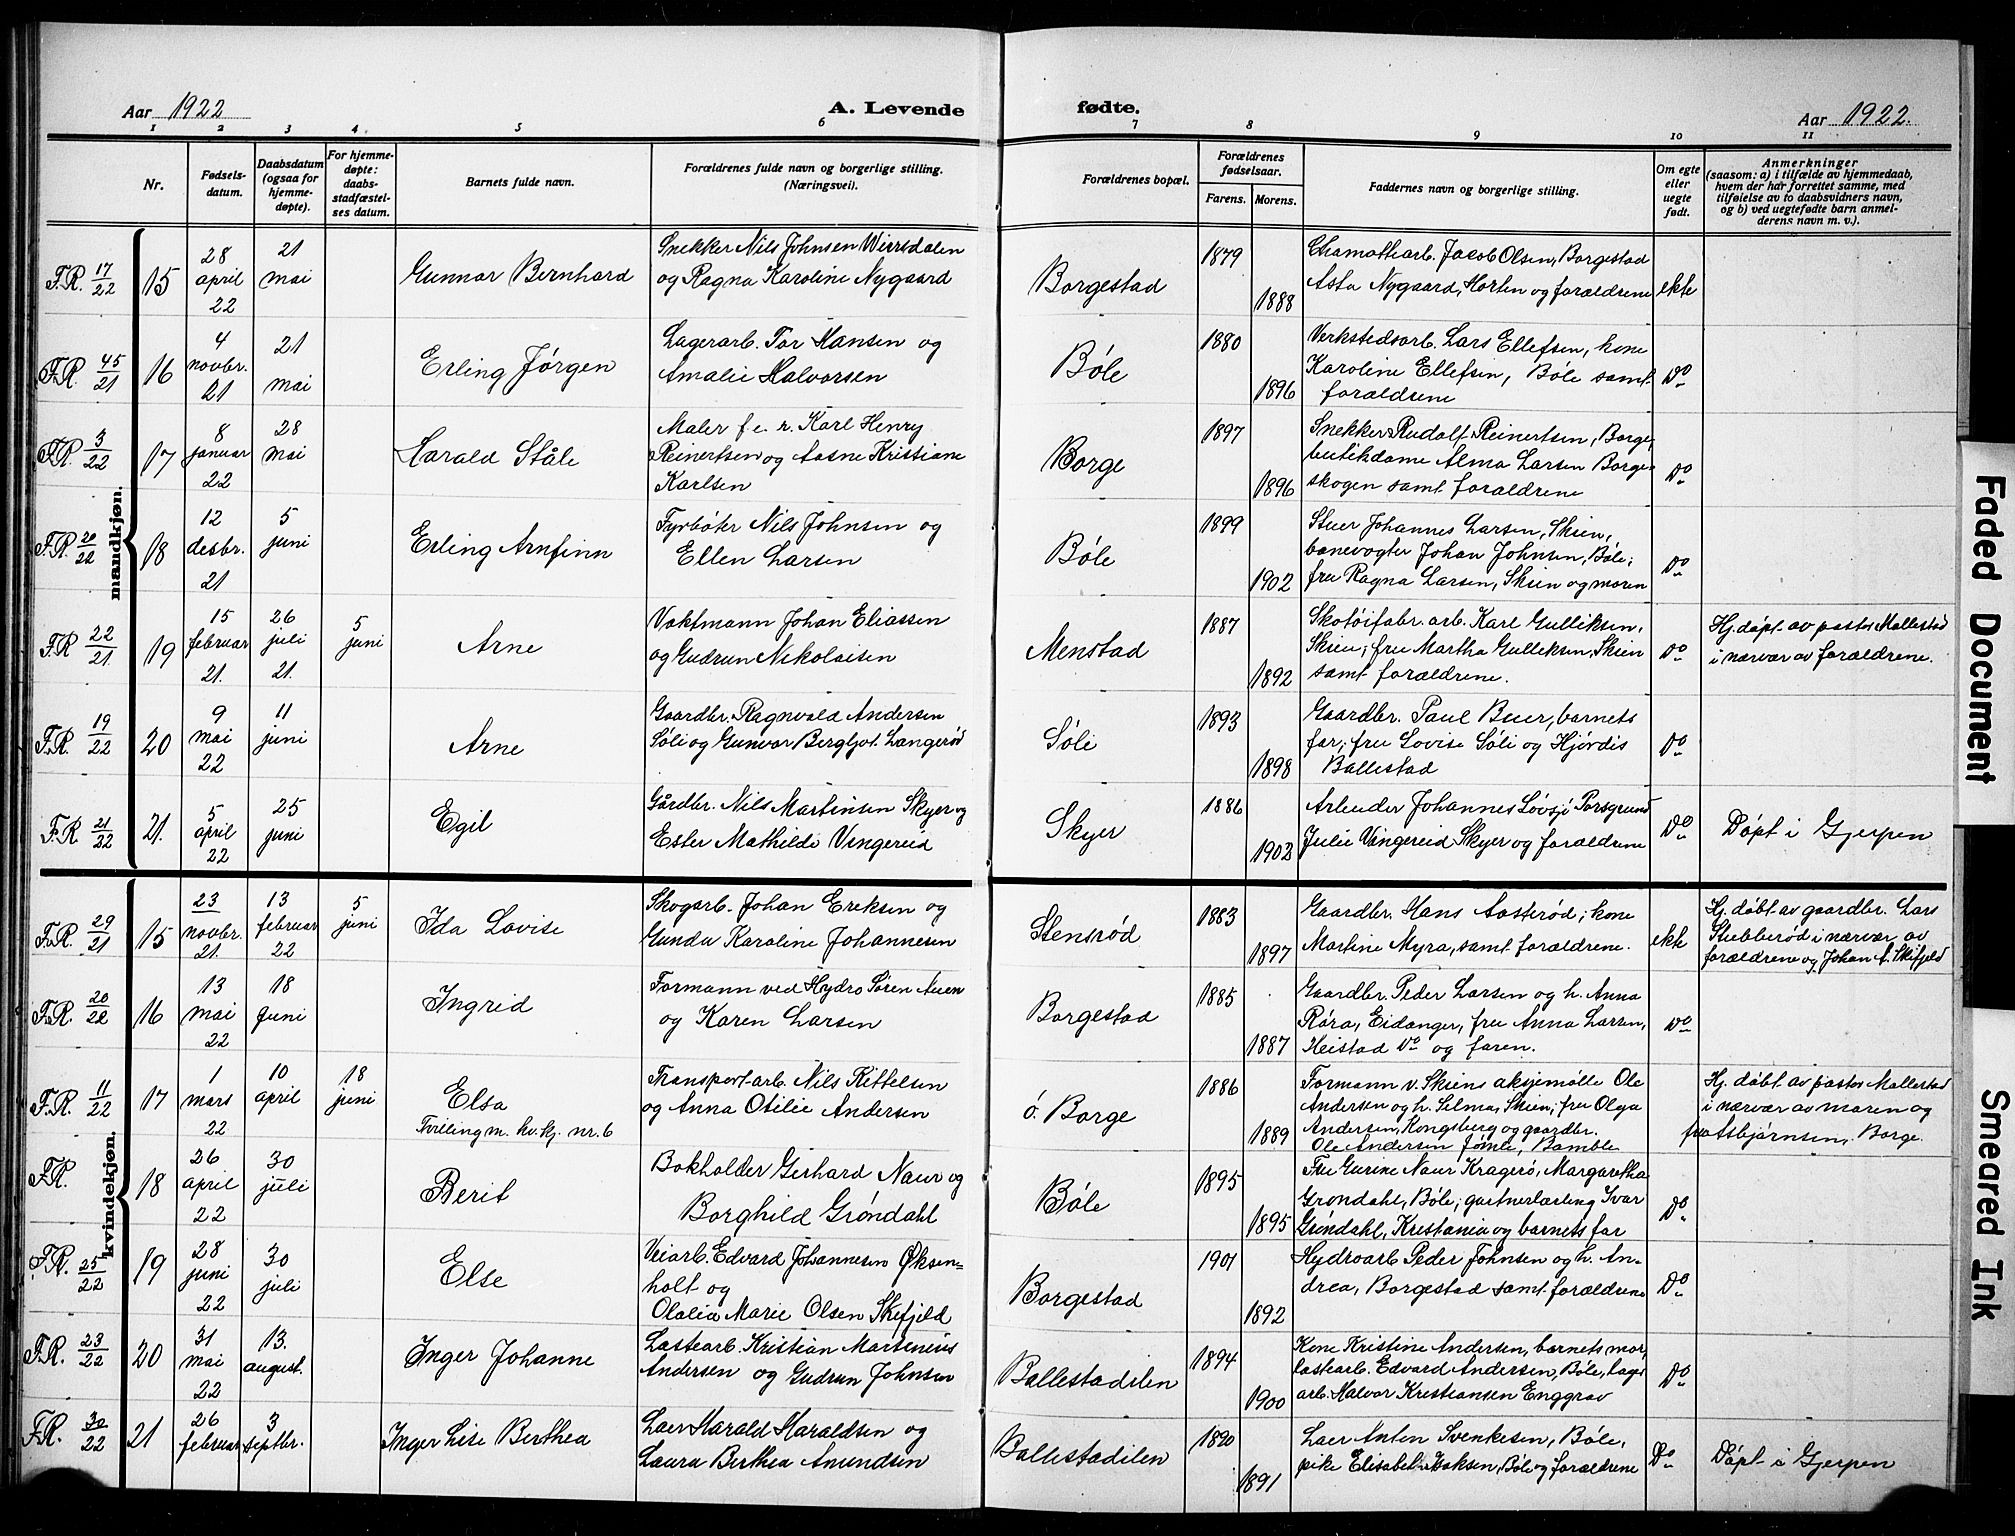 Aar 1922
A. Levende
fødte.
Aar 1922.
1 2 3 4 5 6 7 8 9 10 11
Nr.
Fødsels-
datum.
Daabsdatum
(ogsaa for
hjemme-
døpte).
For hjemme-
døpte:
daabs-
stadfæstel-
ses datum.
Barnets fulde navn.
Forældrenes fulde navn og borgerlige stilling.
(Næringsvei).
Forældrenes bopæl.
Forældrenes
fødselsaar.
Farens. Morens.
Faddernes navn og borgerlige stilling.
Om egte
eller
uegte
født.
Anmerkninger
(saasom: a) i tilfælde av hjemmedaab,
hvem der har forrettet samme, med
tilføielse av to daabsvidners navn,
og b) ved uegtefødte barn anmel-
derens navn m. v.).
mandkjøn.
F.R. 17/22
15
28
april
22
21
mai
Gunnar Bernhard
Snekker Nils Johnsen Wirrsdalen
og Ragna Karoline Nygaard
Borgestad
1879
1888
Chamottearb. Jacob Olsen, Borgestad
Asta Nygaard, Horten og forældrene
ekte
F.R. 45/21
16
4
novbr.
21
21
mai
Erling Jørgen
Lagerarb. Tor Hansen og
Amalie Halvorsen
Bøle
1880
1896
Verkstedsarb. Lars Ellefsen, kone
Karoline Ellefsen, Bøle samt
forældrene
Do
F.R. 3/22
17
8
januar
22
28
mai
Harald Ståle
Maler f. e. r. Karl Henry
Reinertsen og Aasne Kristiane
Karlsen
Borge
1897
1896
Snekker Rudolf Reinertsen, Borge,
butikdame Alma Larsen Borge-
skogen samt forældrene
Do
F.R. 20/22
18
12
desbr.
21
5
juni
Erling Arnfinn
Fyrbøter Nils Johnsen og
Ellen Larsen
Bøle
1899
1902
Stuer Johannes Larsen, Skien,
banevogter Johan Johnsen, Bøle;
fru Ragna Larsen, Skien og moren
Do
F.R 22/21
19
15
februar
21.
26
juli
21.
5
juni
Arne
Vaktmann Johan Eliassen
og Gudrun Nikolaisen
Menstad
1887
1892
Skotøifabr. arb. Karl Gulliksen,
Skien; fru Martha Gulliksen, Skien
samt forældrene.
Do
Hj. døpt av pastor Mallestad
i nærvær av forældrene.
F.R. 19/22
20
9
mai
22
11
juni
Arne
Gaardbr. Ragnvald Andersen
Søli og Gunvor Bergljot Langerød
Søli
1893
1898
Gaardbr. Paul Buer, barnets
far; fru Lovise Søli og Hjørdis
Ballestad
Do
F.R 21/22
21.
5
april
22
25
juni
Egil
Gårdbr. Nils Martinsen Skyer og
Ester Mathilde Vingereid
Skyer
1886
1902
Arbeider Johannes Løvsjø Porsgrund
Julie Vingereid Skyer og forældrene
Do
Døpt i Gjerpen
kvindekjøn.
F.R. 29/21
15
23
novbr.
21.
13
februar
22
5
juni
Ida Lovise
Skogarb. Johan Eriksen og
Gunda Karoline Johannesen
Stensrød
1883
1897
Gaardbr. Hans Aasterød; kone
Martine Myra, samt forældrene.
ekte
Hj. døbt av gaardbr. Lars
Stubberød i nærvær av
forældrene og Johan A. Skifjeld
F.R. 20/22
16
13
mai
22
18
juni
Ingrid
Formann ved Hydro Søren Auen
og Karen Larsen
Borgestad
1885
1887
Gaardbr. Peder Larsen og h. Anna
Røra, Eidanger, fru Anna Larsen,
Heistad Do og faren.
Do
F.R. 11/22
17
1
mars
22
10
april
18
juni
Elsa
Tvilling m. kv.kj. nr. 6
Transportarb. Nils Kittelsen
og Anna Otilie Andersen
ö. Borge
1886
1889
Formann v. Skiens aksjemølle Ole
Andersen og h. Selma, Skien; fru Olga
Andersen, Kongsberg og gaardbr.
Ole Andersen Jømle, Bamble
Hj. døbt av pastor Mallestad
i nærvær av moren og
fru Asbjørnsen, Borge.
F.R.
18
26
april
22
30
juli
Berit
Bokholder Gerhard Naur og
Borghild Grøndahl
Bøle
1895
1895
Fru Gurine Naur Kragerø, Margaretha
Grøndahl, Bøle; gartnerlærling Ivar
Grøndahl, Kristania og barnets far
Do
F.R. 25/22
19
28
juni
22
30
juli
Else
Veiarb. Edvard Johannesen Øksen-
holt og
Olalia Marie Olsen Skifjeld
Borgestad
1901
1892
Hydroarb Peder Johnsen og h. An-
drea, Borgestad samt forældrene
Do
F.R. 23/22
20
31
mai
22
13.
august.
Inger Johanne
Lastearb. Kristian Martinius
Andersen og Gudrun Johnsen
Ballestadilen
1894
1900
Kone Kristine Andersen, barnets mor,
lastearb. Edvard Andersen, Bøle, lager
arb. Halvor Kristiansen Enggrav
Do
F.R. 30/22
21
26
februar
3
septbr.
Inger Lise Berthea
Laer Harald Haraldsen og
Laura Berthea Amundsen
Ballestadilen
1890
1891
Laer Anton Svenkesen, Bøle,
pike Elisabet Isaksen, Bøle og forældrene
Do
Døpt i Gjerpen
Faded Document
Smeared Ink